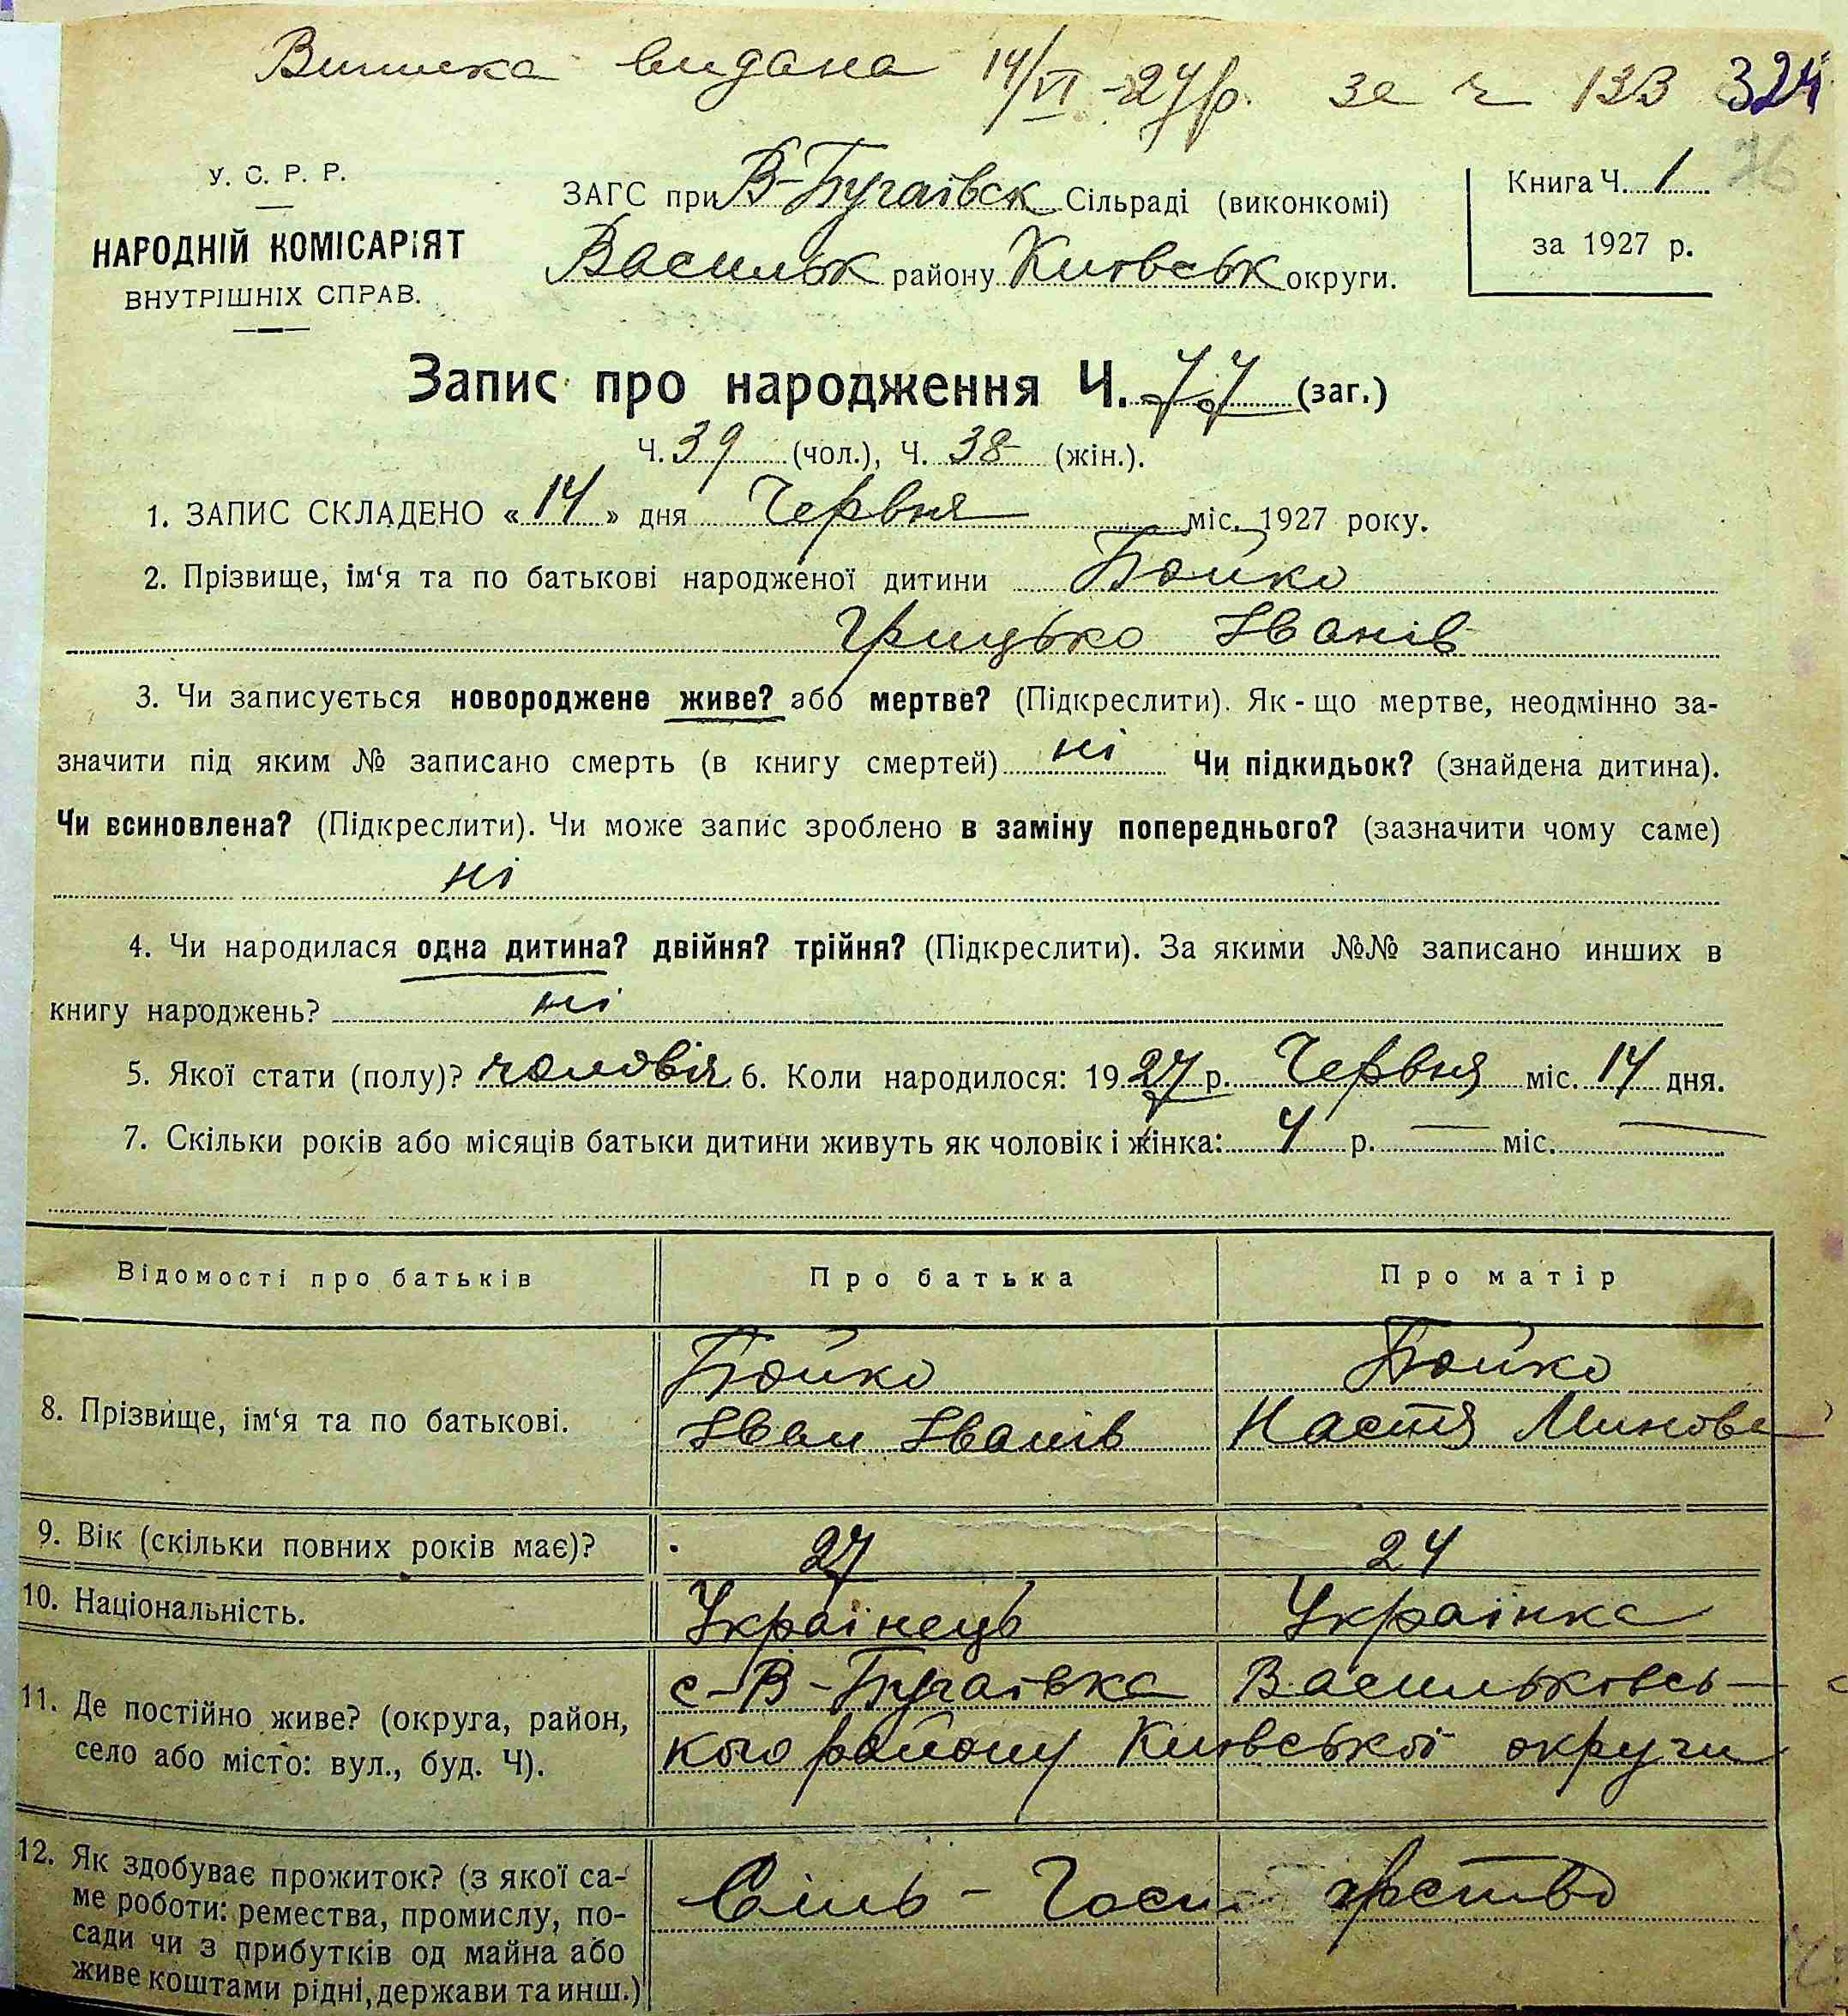 Виписка видана 14/VI-27р. за ч 133 324
76
У. С. Р. Р.
НАРОДНІЙ КОМІСАРІЯТ
ВНУТРІШНІХ СПРАВ.
ЗАГС при В-Бугаївск Сільраді (виконкомі)
Васильк району Київськ округи.
Книга Ч. 1
за 1927 р.
Запис про народження Ч. 77 (заг.)
Ч. 39 (чол.), Ч. 38 (жін.).
1. ЗАПИС СКЛАДЕНО « 14 » дня Червня міс. 1927 року.
2. Прізвище, ім‘я та по батькові народженої дитини Бойко
Грицько Іванів
3. Чи записується новороджене живе? або мертве? (Підкреслити). Як-що мертве, неодмінно за-
значити під яким № записано смерть (в книгу смертей) ні Чи підкидьок? (знайдена дитина).
Чи всиновлена? (Підкреслити). Чи може запис зроблено в заміну попереднього? (зазначити чому саме)
ні
4. Чи народилася одна дитина? двійня? трійня? (Підкреслити). За якими №№ записано инших в
книгу народжень? ні
5. Якої стати (полу)? чоловія 6. Коли народилося: 1927 р. Червня міс. 14 дня.
7. Скільки років або місяців батьки дитини живуть як чоловік і жінка: 4 р. — міс. —
Відомості про батьків Про батька Про матір
8. Прізвище, ім‘я та по батькові.
Бойко
Іван Іванів
Бойко
Настя Минова
9. Вік (скільки повних років має)? 27 24
10. Національність. Українець Українка
11. Де постійно живе? (округа, район,
село або місто: вул., буд. Ч).
с-В-Бугаївка Васильковсь-
кого району Київської округи
12. Як здобуває прожиток? (з якої са-
ме роботи: ремества, промислу, по-
сади чи з прибутків од майна або
живе коштами рідні, держави та инш.)
Сіль-Госп рство